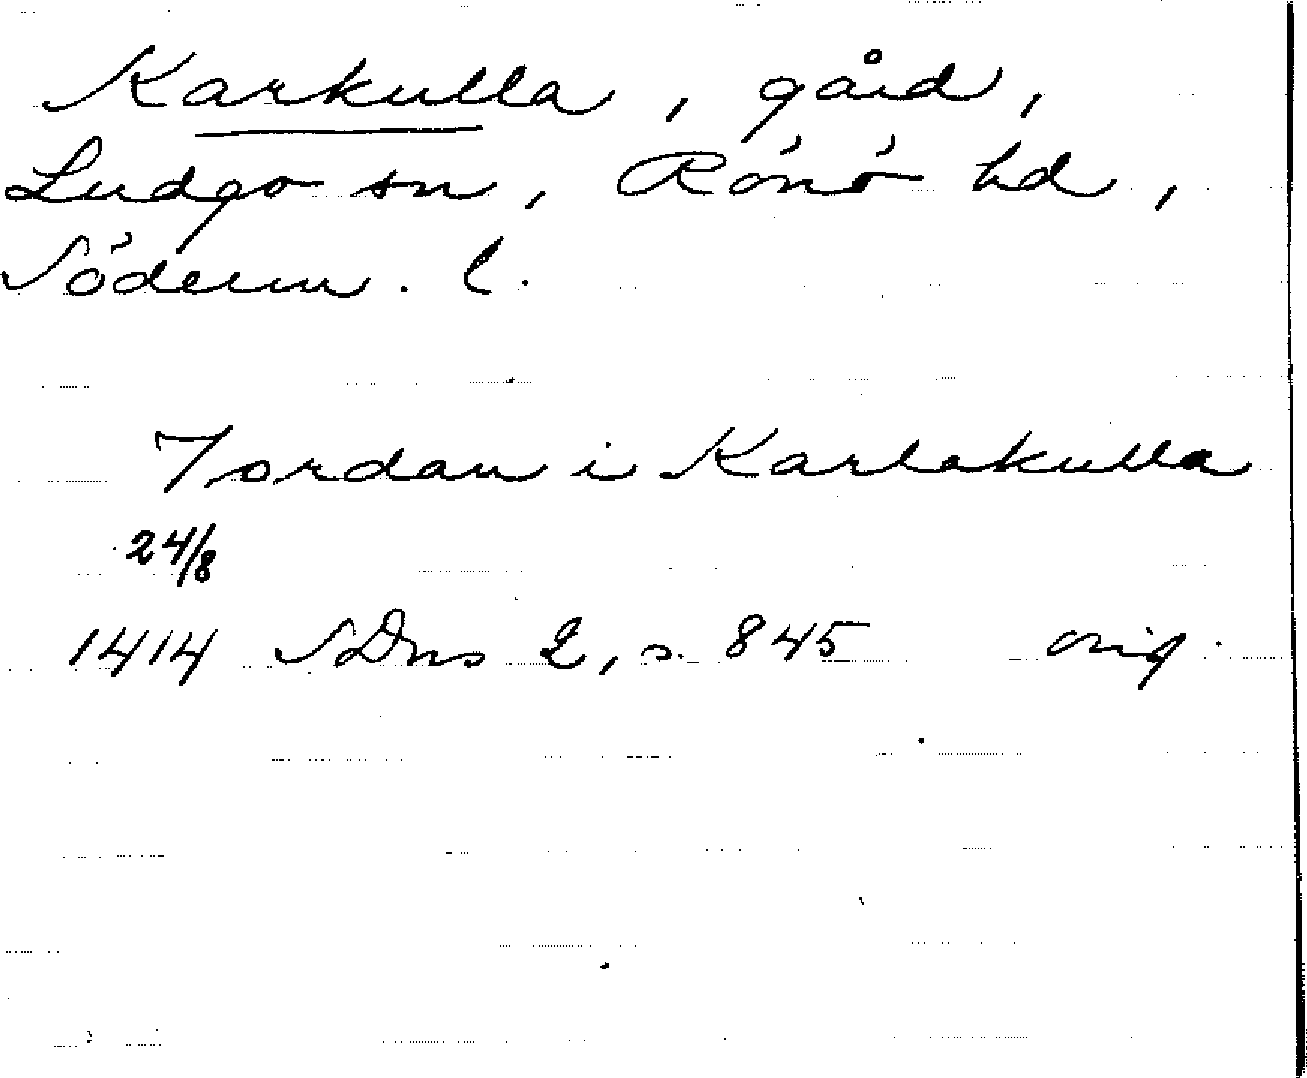 Karkulla, gård,
Ludgo sn, Rönö hd,
Söderm. l.
Jordan i Karlakulla
24/8
1414 SDns 2, s. 845 orig.